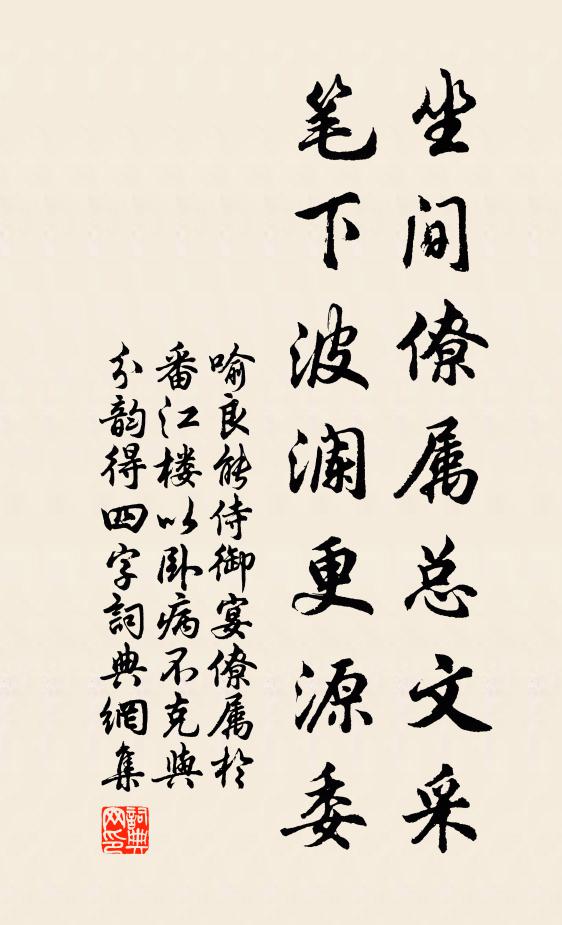 坐间僚属总文采
笔下波澜更源委
喻良能侍御宴僚属於
番江楼以卧病不克與
分韵得四字詞典網集
詞典网印